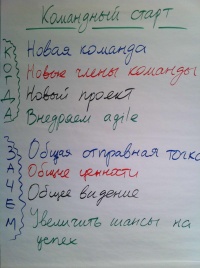 Командный старт
КОГДА
Новая команда
Новые члены команды
Новый проект
Внедряем agile
ЗАЧЕМ
Общая отправная точка
Общие ценности
Общее видение
Увеличить шансы на
успех